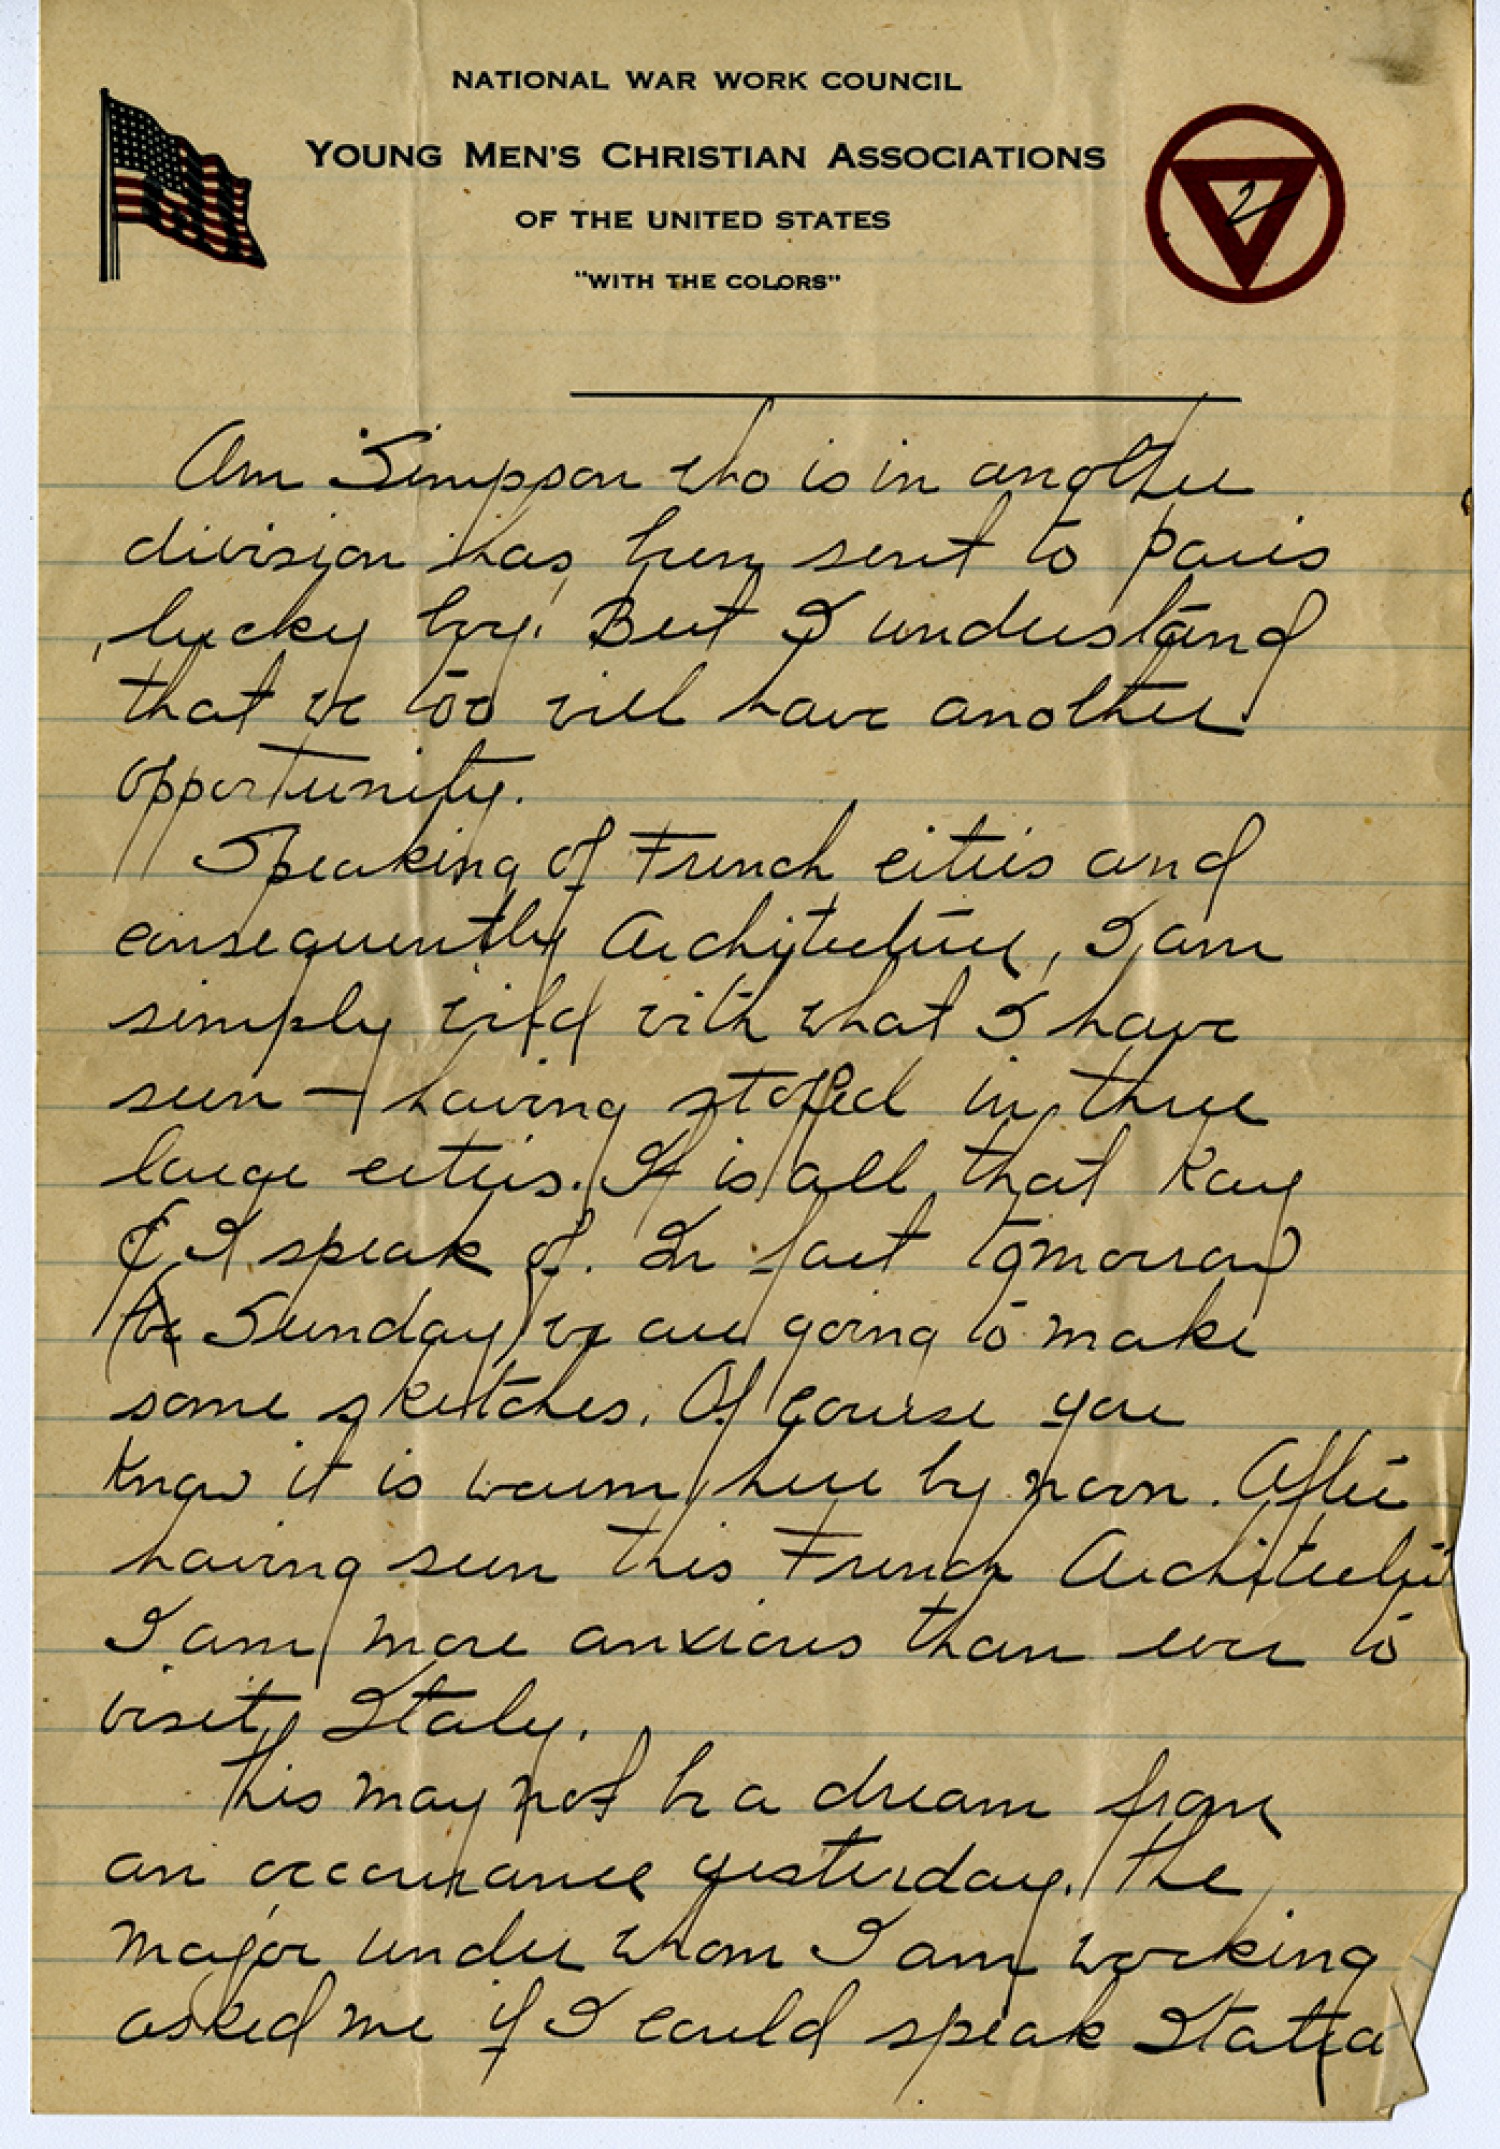 NATIONAL WAR WORK COUNCIL
YOUNG MEN'S CHRISTIAN ASSOCIATIONS
OF THE UNITED STATES
"WITH THE COLORS"
2
Am Simpson who is in another
division has been sent to Paris
lucky boy. But I understand
that we too will have another
opportunity.
Speaking of French cities and
consequently Architecture, I am
simply wild with what I have
seen — having stoped in three
large cities. It is all that Kay
& I speak of. In fact tomorrow
Sunday we are going to make
some sketches. Of course you
know it is warm here by noon. After
having seen this French Architectu
I am more anxious than ever to
visit Italy.
This may not be a dream from
an occurance yesterday. The
major under whom I am working
asked me if I could speak Italia